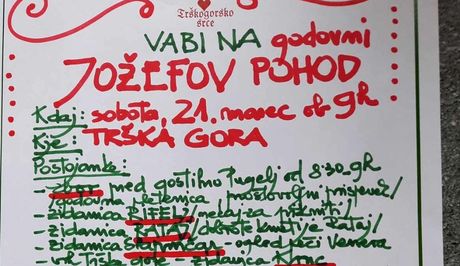 Trškogorsko
srce
VABI NA godovni
JOŽEFOV POHOD
Kdaj: sobota, 21. marec ob 9h
Kje: TRŠKA GORA
Postojanke:
- zbor pred gostilno Pugelj od 8:30-9h
/godovna pletenica/prostovoljni prispevek/
- zidanica RIFELJ /nekaj za prikmiti/
- zidanica RATAJ /dobrote kmetije Rataj/
- zidanica - ogled peči Venera
- vrh Trške gore - zidanica